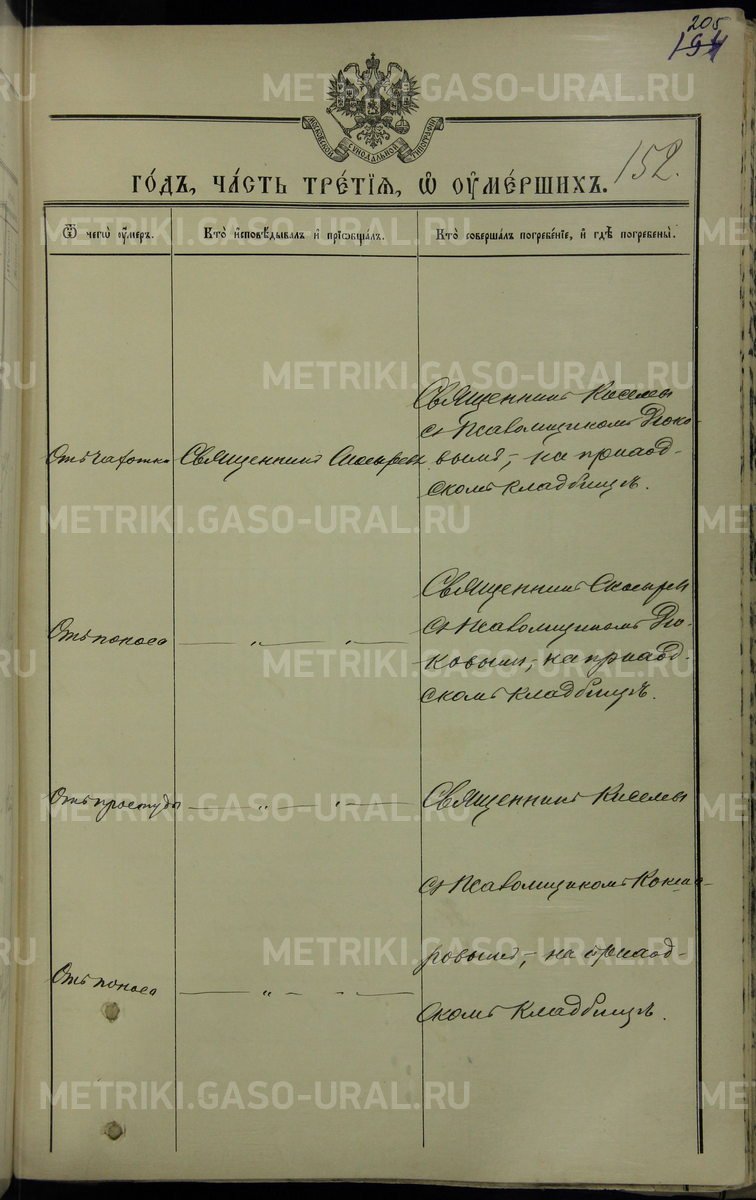 205
194
МОСКОВСКОЙ СѴНОДАЛЬНОЙ ТИПОГРАФІИ
ГОДЪ, ЧАСТЬ ТРЕТІЯ, Ѿ ОУМЕРШИХЪ.
152.
Ѿ чегѡ оумеръ.
Кто исповѣдывалъ и пріобщалъ.
Кто совершалъ погребеніе, и гдѣ погребены.
Отъ чахотки
Священникъ
Священникъ Киселевъ
съ Псаломщикомъ Дюко-
вымъ, на приход-
скомъ кладбищѣ.
Отъ поноса
— „ — „ —
Священникъ
съ Псаломщикомъ Дю-
ковымъ, на приход-
скомъ кладбищѣ.
Отъ простуды
— „ — „ —
Священникъ Киселевъ
съ Псаломщикомъ
на приход-
скомъ кладбищѣ.
Отъ поноса
— „ — „ —
METRIKI.GASO-URAL.RU